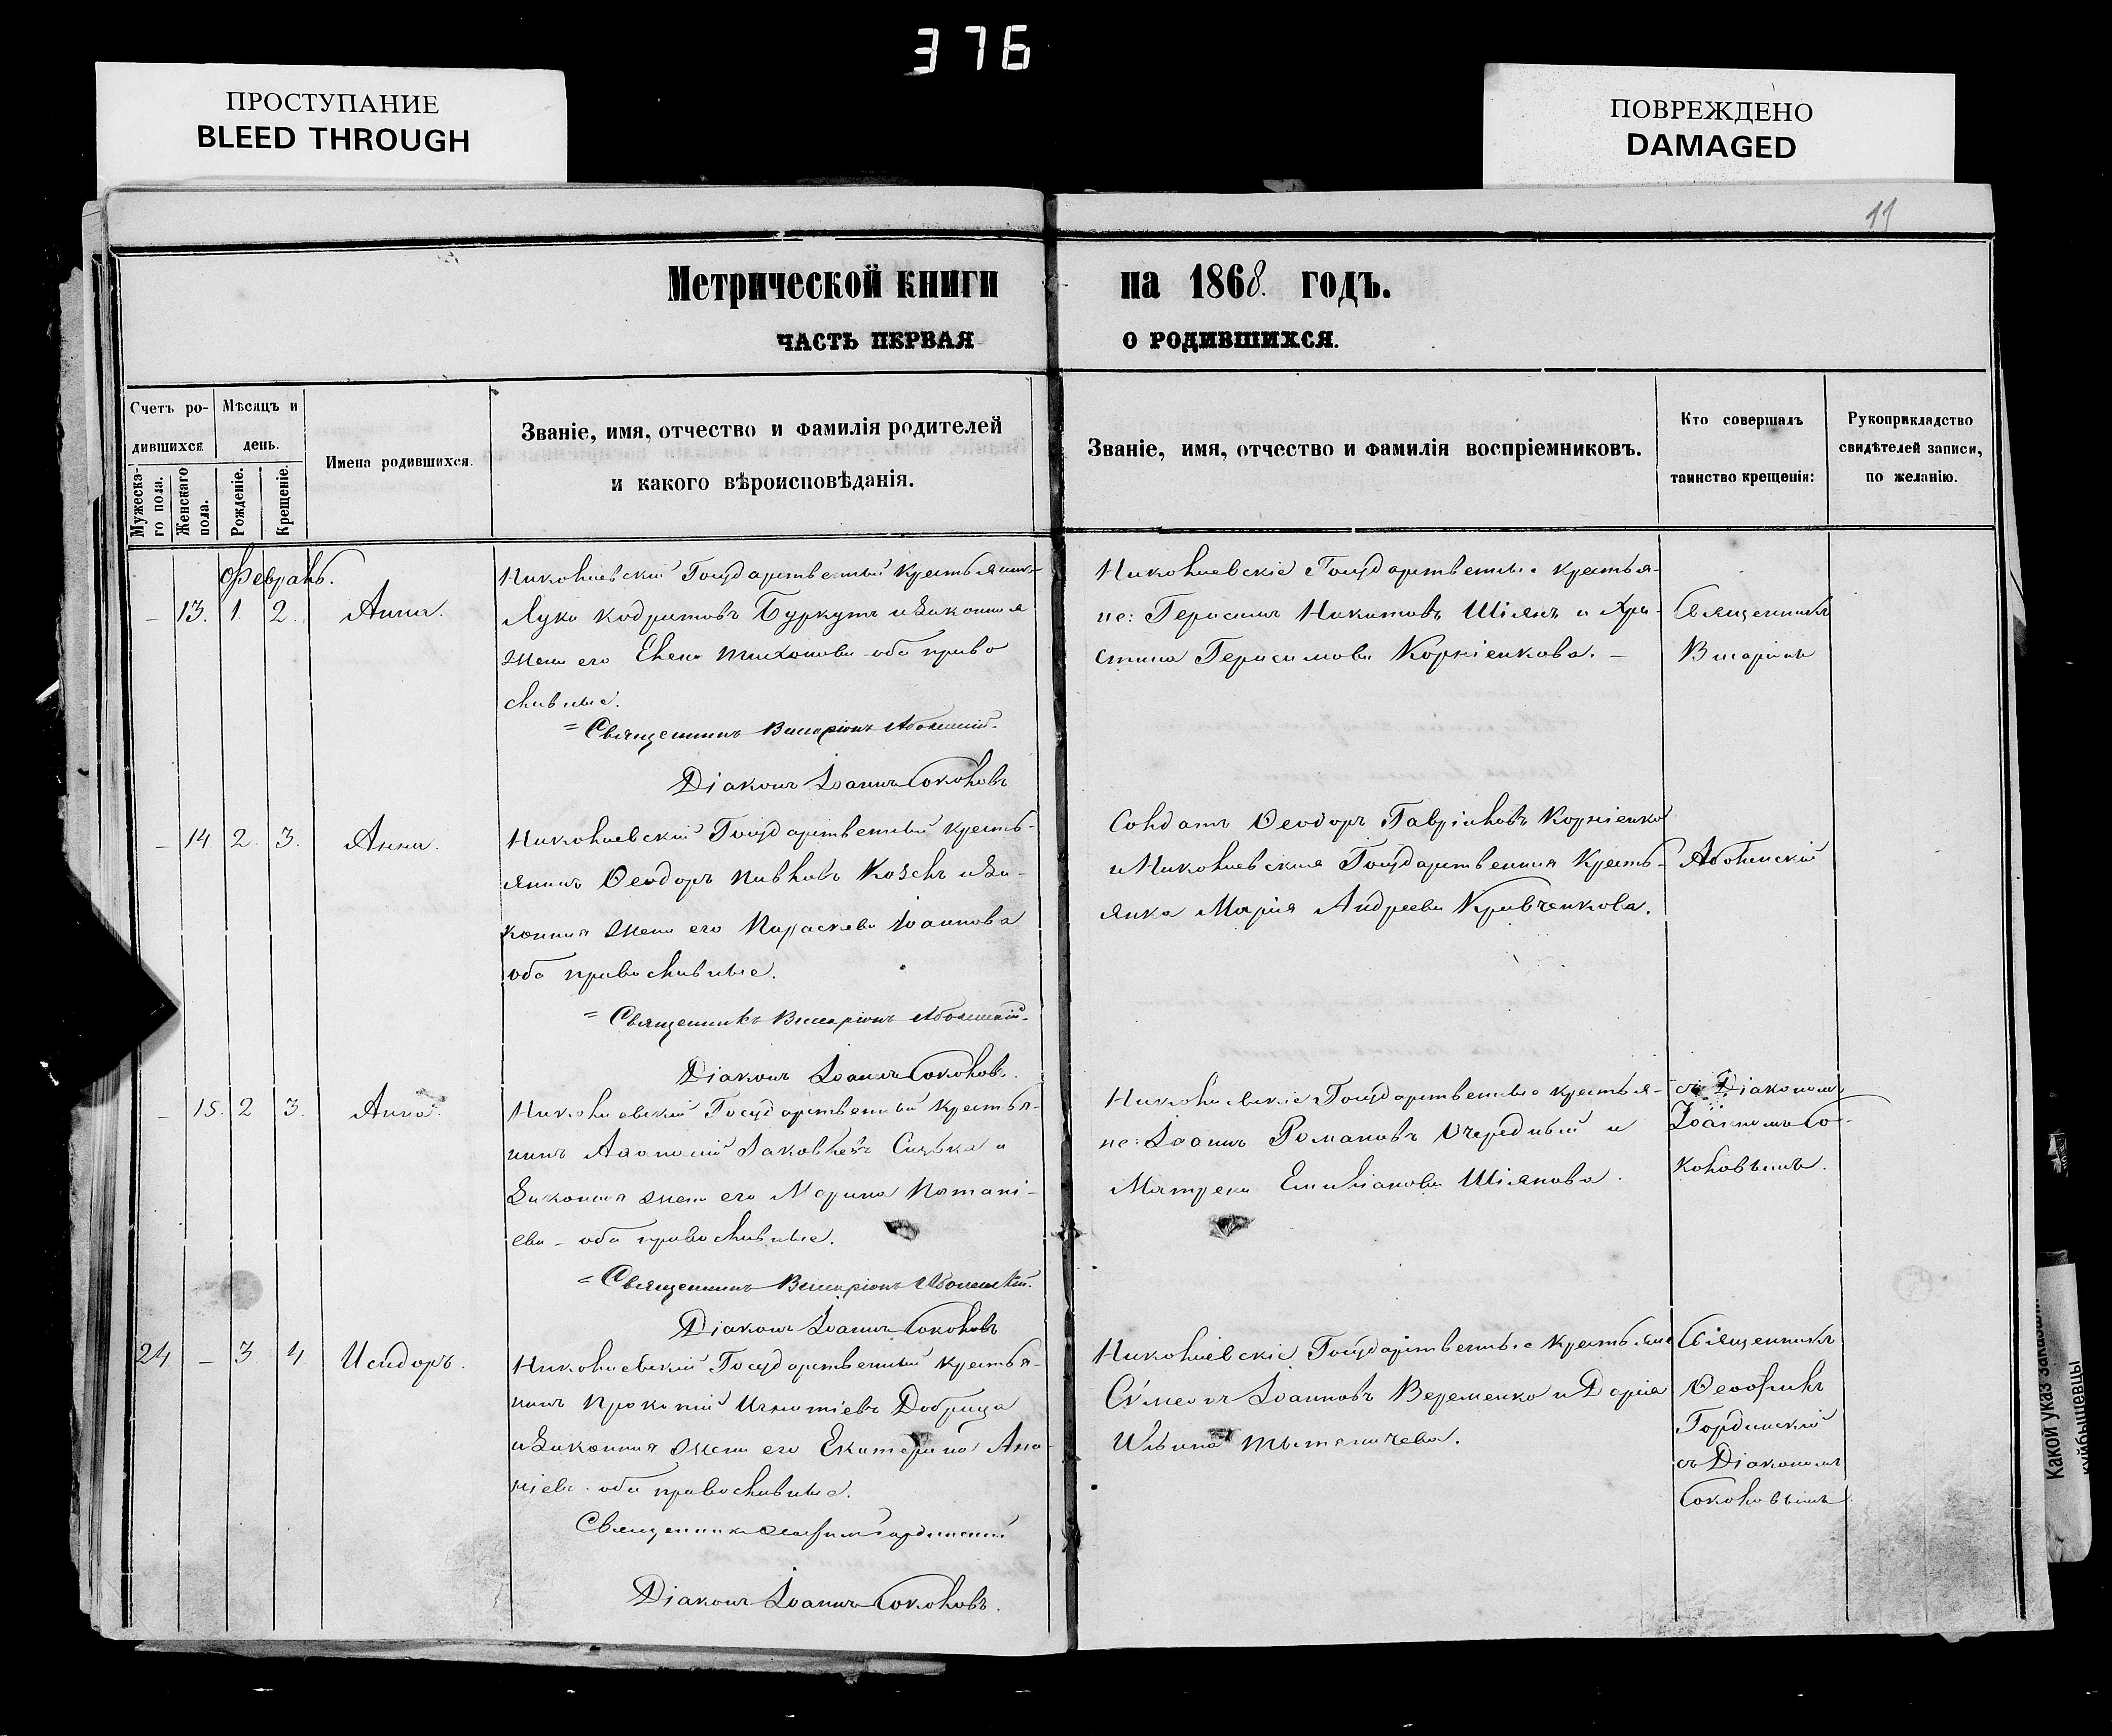 376
ПРОСТУПАНИЕ
BLEED THROUGH
ПОВРЕЖДЕНО
DAMAGED
11
Метрической книги на 1868. годъ.
ЧАСТЬ ПЕРВАЯ О РОДИВШИХСЯ.
Счетъ ро-
дившихся
Мужеска-
го пола.
Женскаго
пола.
Мѣсяцъ и
день.
Рожденіе.
Крещеніе.
Имена родившихся.
Званіе, имя, отчество и фамилія родителей
и какого вѣроисповѣданія.
Званіе, имя, отчество и фамилія воспріемниковъ.
Кто совершалъ
таинство крещенія:
Рукоприкладство
свидѣтелей записи,
по желанію.
Февраль.
– 13. 1. 2. Анна.
Николаевскій Государственный крестьянинъ
Лука Кодратовъ Буркутъ и законная
жена его Елена Тихонова оба право
славные.
= Священникъ Виссаріонъ
Діаконъ Іоаннъ Соколовъ
Николаевскіе Государственные крестья-
не: Герасимъ Никитовъ Шіянъ и Хри-
стина Герасимова Корніенкова. –
Священникъ
Висаріонъ
– 14 2. 3. Анна.
Николаевскій Государственный кресть-
янинъ Ѳеодоръ Павловъ Козелъ и за-
конная жена его Параскева Іоаннова
оба православные.
= Священникъ Виссаріонъ
Діаконъ Іоаннъ Соколовъ.
Солдатъ Ѳеодоръ Гавріиловъ Корніенко
и Николаевская Государственная кресть-
янка Марія Андреева Кравченкова.
– 15. 2 3. Анна.
Николаевскій Государственный крестья-
нинъ Іаковлевъ и
законная жена его Марина
ева – оба православные.
= Священникъ Виссаріонъ
Діаконъ Іоаннъ Соколовъ
Николаевскіе Государственные крестья-
не: Іоаннъ Романовъ Очередный и
Матрена Емиліанова Шіянова.
съ Діакономъ
Іоанномъ Со-
коловымъ.
24 – 3 4 Исидоръ.
Николаевскій Государственный крестья-
нинъ Прокопій Игнатіевъ Добрица
и законная жена его Екатерина Ана-
ніева оба православные.
Священникъ
Діаконъ Іоаннъ Соколовъ.
Николаевскіе Государственные крестьяне
Сѵмеонъ Іоанновъ Веременко и Дарія
Ильина
Священникъ
Ѳеофилъ
Гординскій
съ Діакономъ
Соколовымъ
Какой указ заказали
куйбышевцы